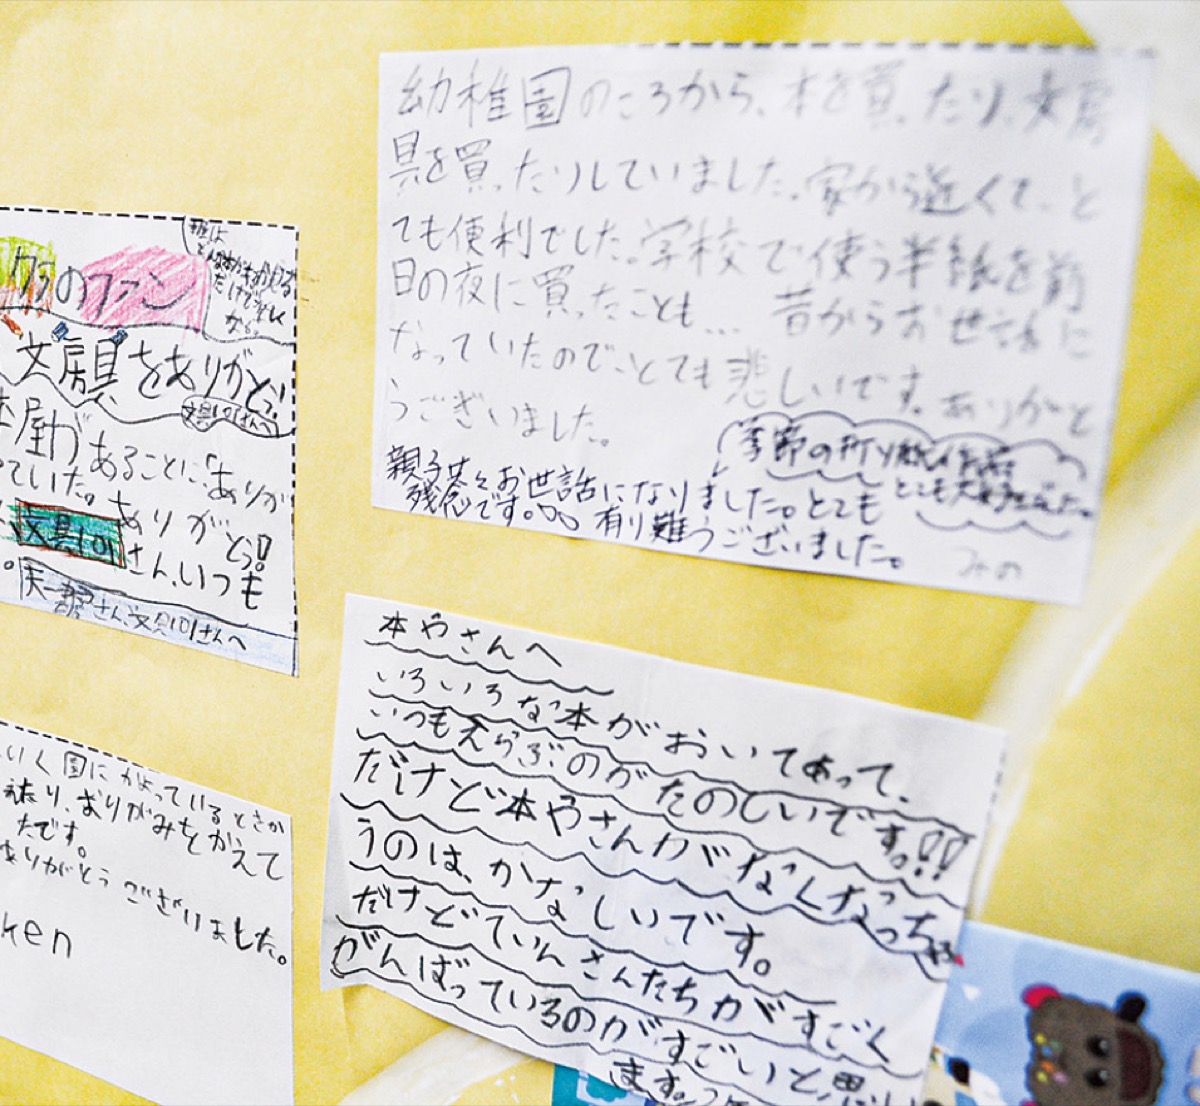 幼稚園のころから、本を買ったり、文房
具を買ったりしていました。家から近くて、と
ても便利でした。学校で使う半紙を前
日の夜に買ったことも… 昔からお世話に
なっていたのでとても悲しいです。ありがと
うございました。
季節の折り紙作品
とても大好きでした。
親子共々お世話になりました。とても
残念です。 有り難うございました。
みの
のファン
だけで楽しく
文房具をありがとう!
文具101さんへ
屋があることに、「ありが
ていた。ありがとう!
文具101さん、いつも
さん、文具101さんへ
本やさんへ
いろいろな本がおいてあって、
いつもえらぶのがたのしいです。!!
だけど本やさんがなくなっちゃ
うのは、かなしいです。
だけどていんさんたちがすごく
がんばっているのがすごいと思い
ます。
いく園にかよっているときか
たり、おりがみをかえて
たです。
ありがとうございました。
ken